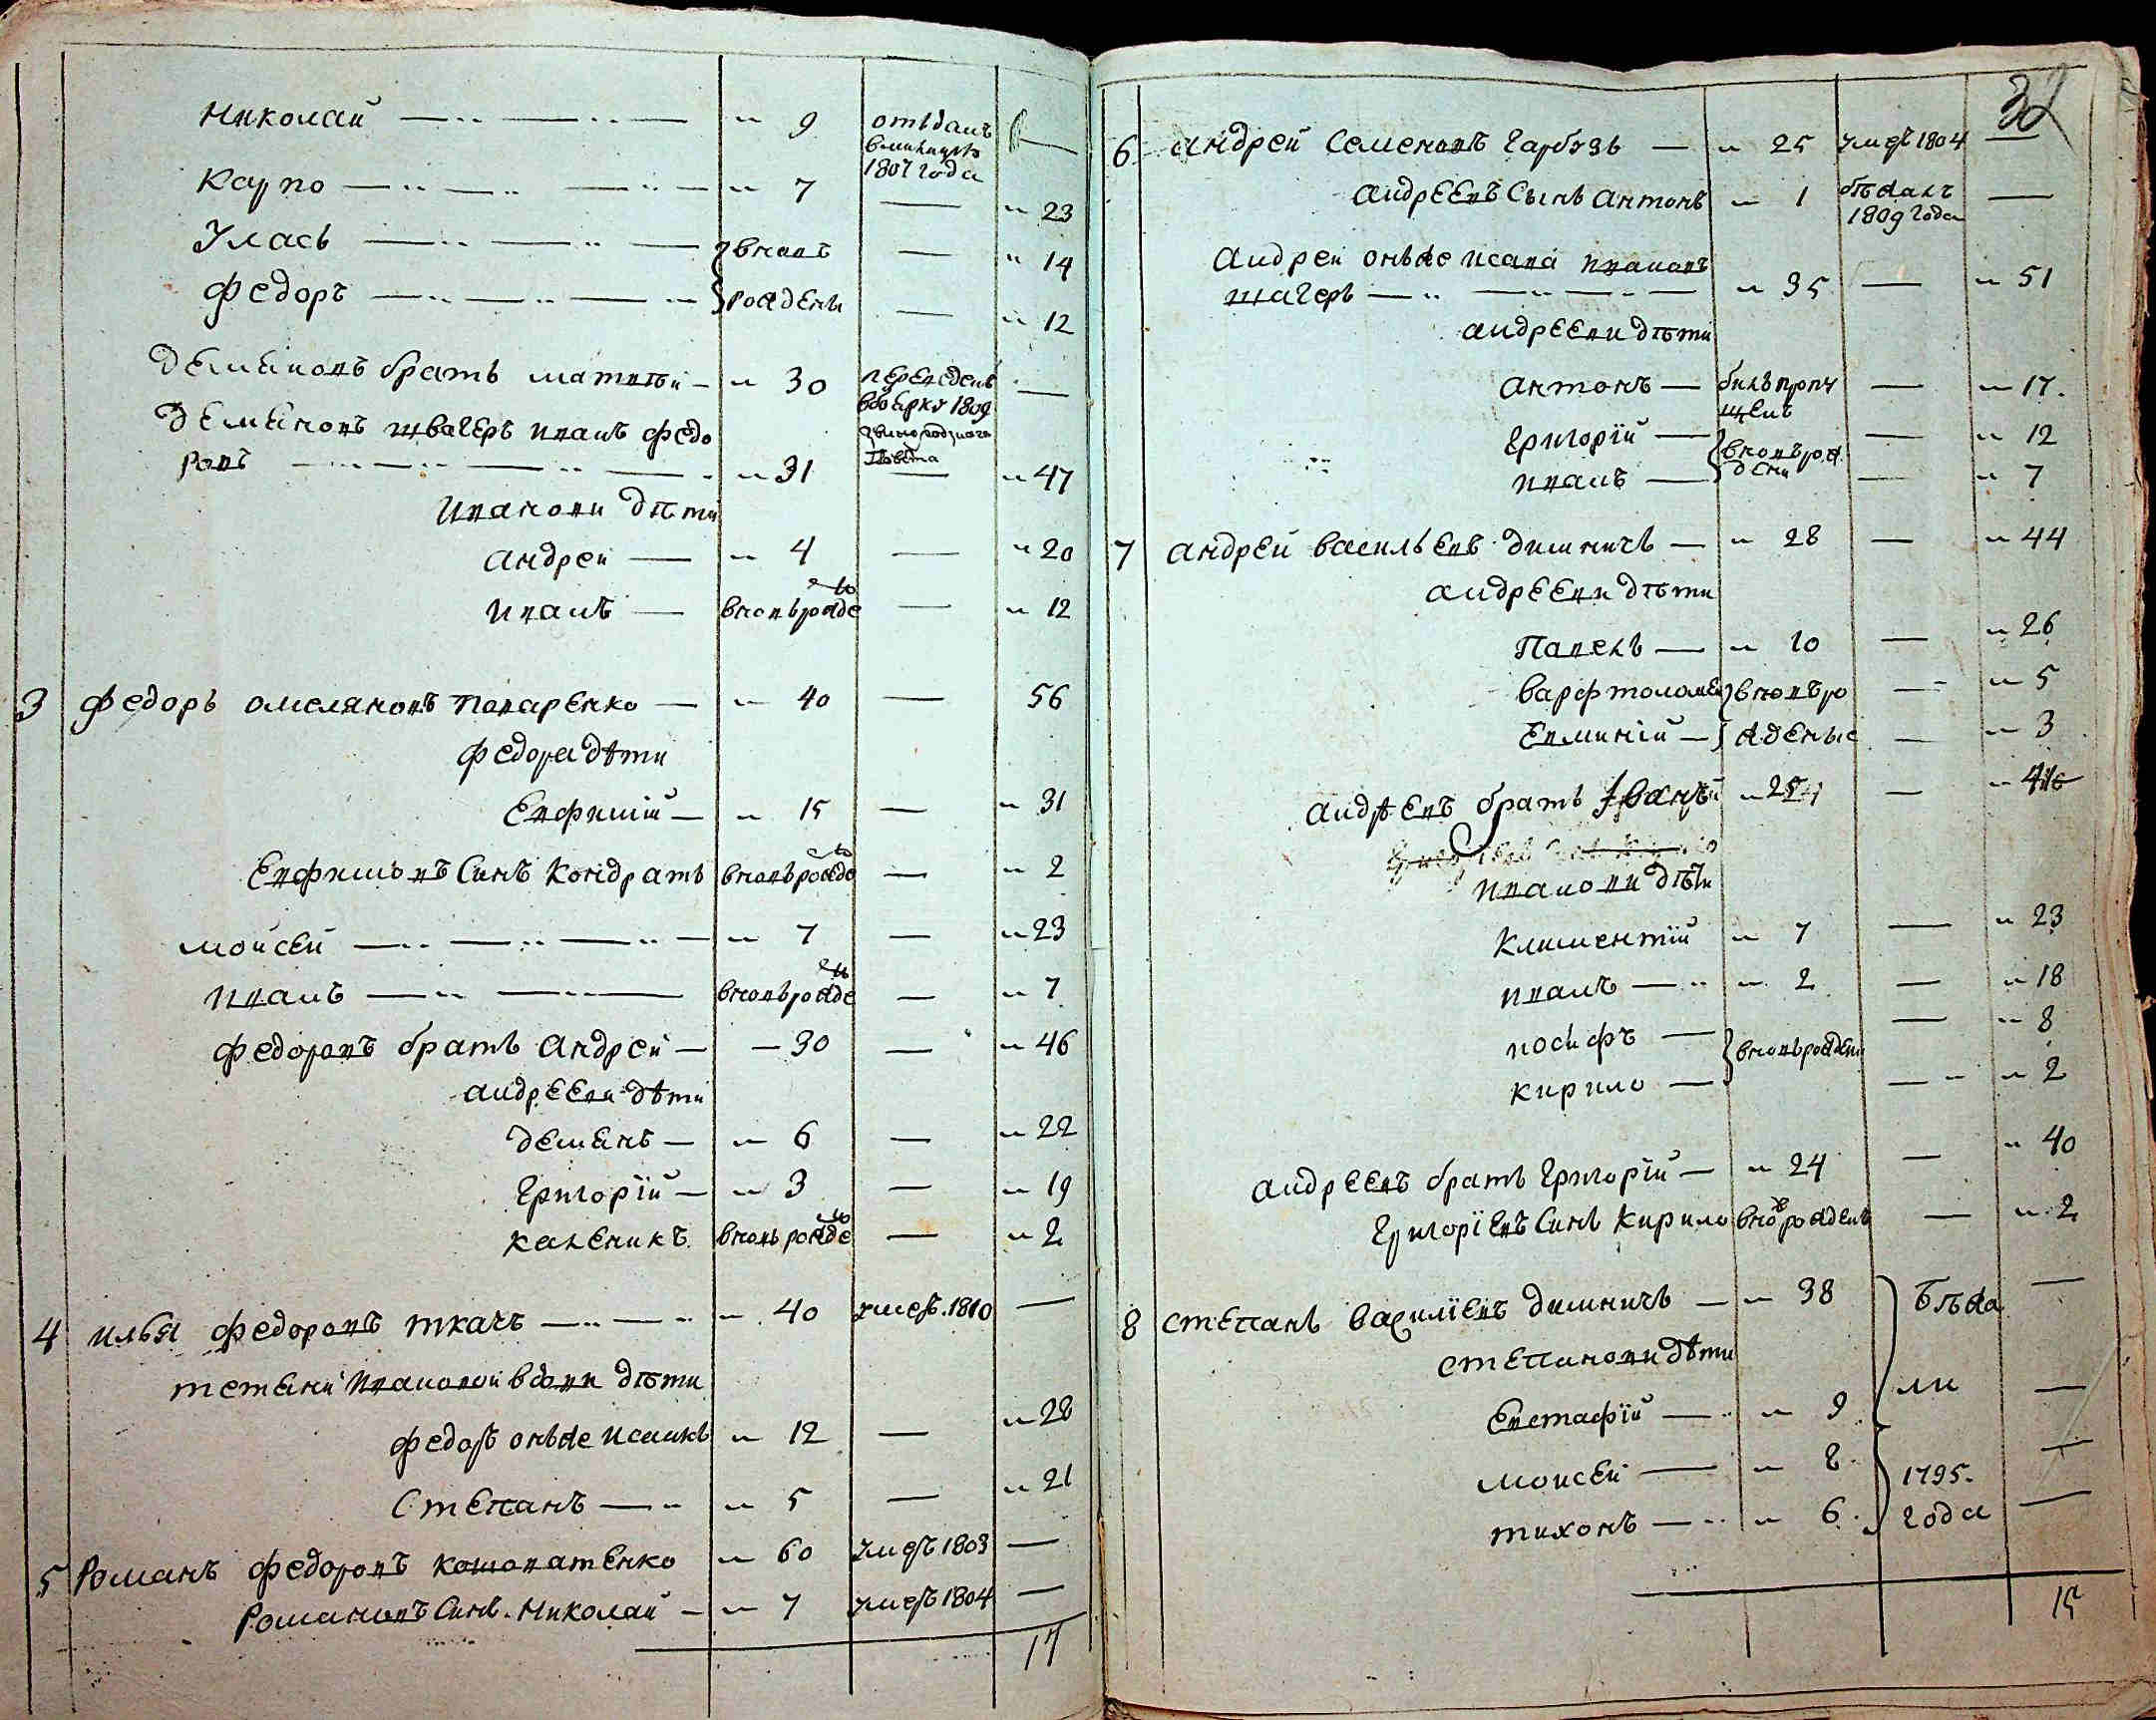 Николай — 9 отъданъ
вмилицию
1807 года —
Карпо — 7 — 23
Уласъ — вновь — 14
Федоръ — рождены — 12
Деменовъ братъ Матвѣй — 30 переведенъ —
вбоярку 1809
Деменовъ швагеръ Иванъ Федо
звиногродзкаго
ровъ — 31 повѣта — 47
Ивановы дѣти
Андрей — 4 — 20
Иванъ — вновьрожде — 12
3 Федоръ Омеляновъ Поваренко — 40 — 56
Федора дѣти
Евфимій — 15 — 31
Евфимовъ Синъ Кондратъ вновьрожде — 2
Мойсей — 7 — 23
Иванъ — вновьрожде — 7
Федоровъ братъ Андрей — 30 — 46
Андрееви дѣти
Деменъ — 6 — 22
Григорій — 3 — 19
Каленикъ вновьрожде — 2
4 Илья Федоровъ Ткачъ — 40 умеръ 1810 —
Тетяни Ивановой вдови дѣти
Федоръ онъже Исаикъ 12 — 28
Степанъ — 5 — 21
5 Романъ Федоровъ Кошоватенко 60 умеръ 1803 —
Романовъ Синъ Николай — 7 умеръ 1804 —
17
32
6 Андрей Семеновъ Гарбузъ — 25 умеръ 1804 —
Андреевъ Сынъ Антонъ 1 бѣжалъ —
1809 года
Андрей онъже Исава Ивановъ
швагеръ — 35 — 51
Андрееви дѣти
Антонъ — билъ пропу — 17
щенъ
Григорій — вновърож — 12
Иванъ — дени — 7
7 Андрей Васильевъ Димничъ — 28 — 44
Андрееви дѣти
Павелъ — 10 — 26
Варфтоломей вновъро — 5
Евминій — жденые — 3
Андреевъ братъ Іванъ 25 —
Иванови дѣти
Климентій 7 — 23
Иванъ — 2 — 18
Иосифъ — вновьрождени — 8
Кирило — 2
Андреевъ братъ Григорій — 24 — 40
Григоріевъ Синъ Кирило вновърожденъ — 2
8 Степанъ Василіевъ Димничъ — 38 Бѣжа —
Степанови дѣти
Евстафій — 9 ли —
Моисей — 8 1795 —
Тихонъ — 6 года —
15